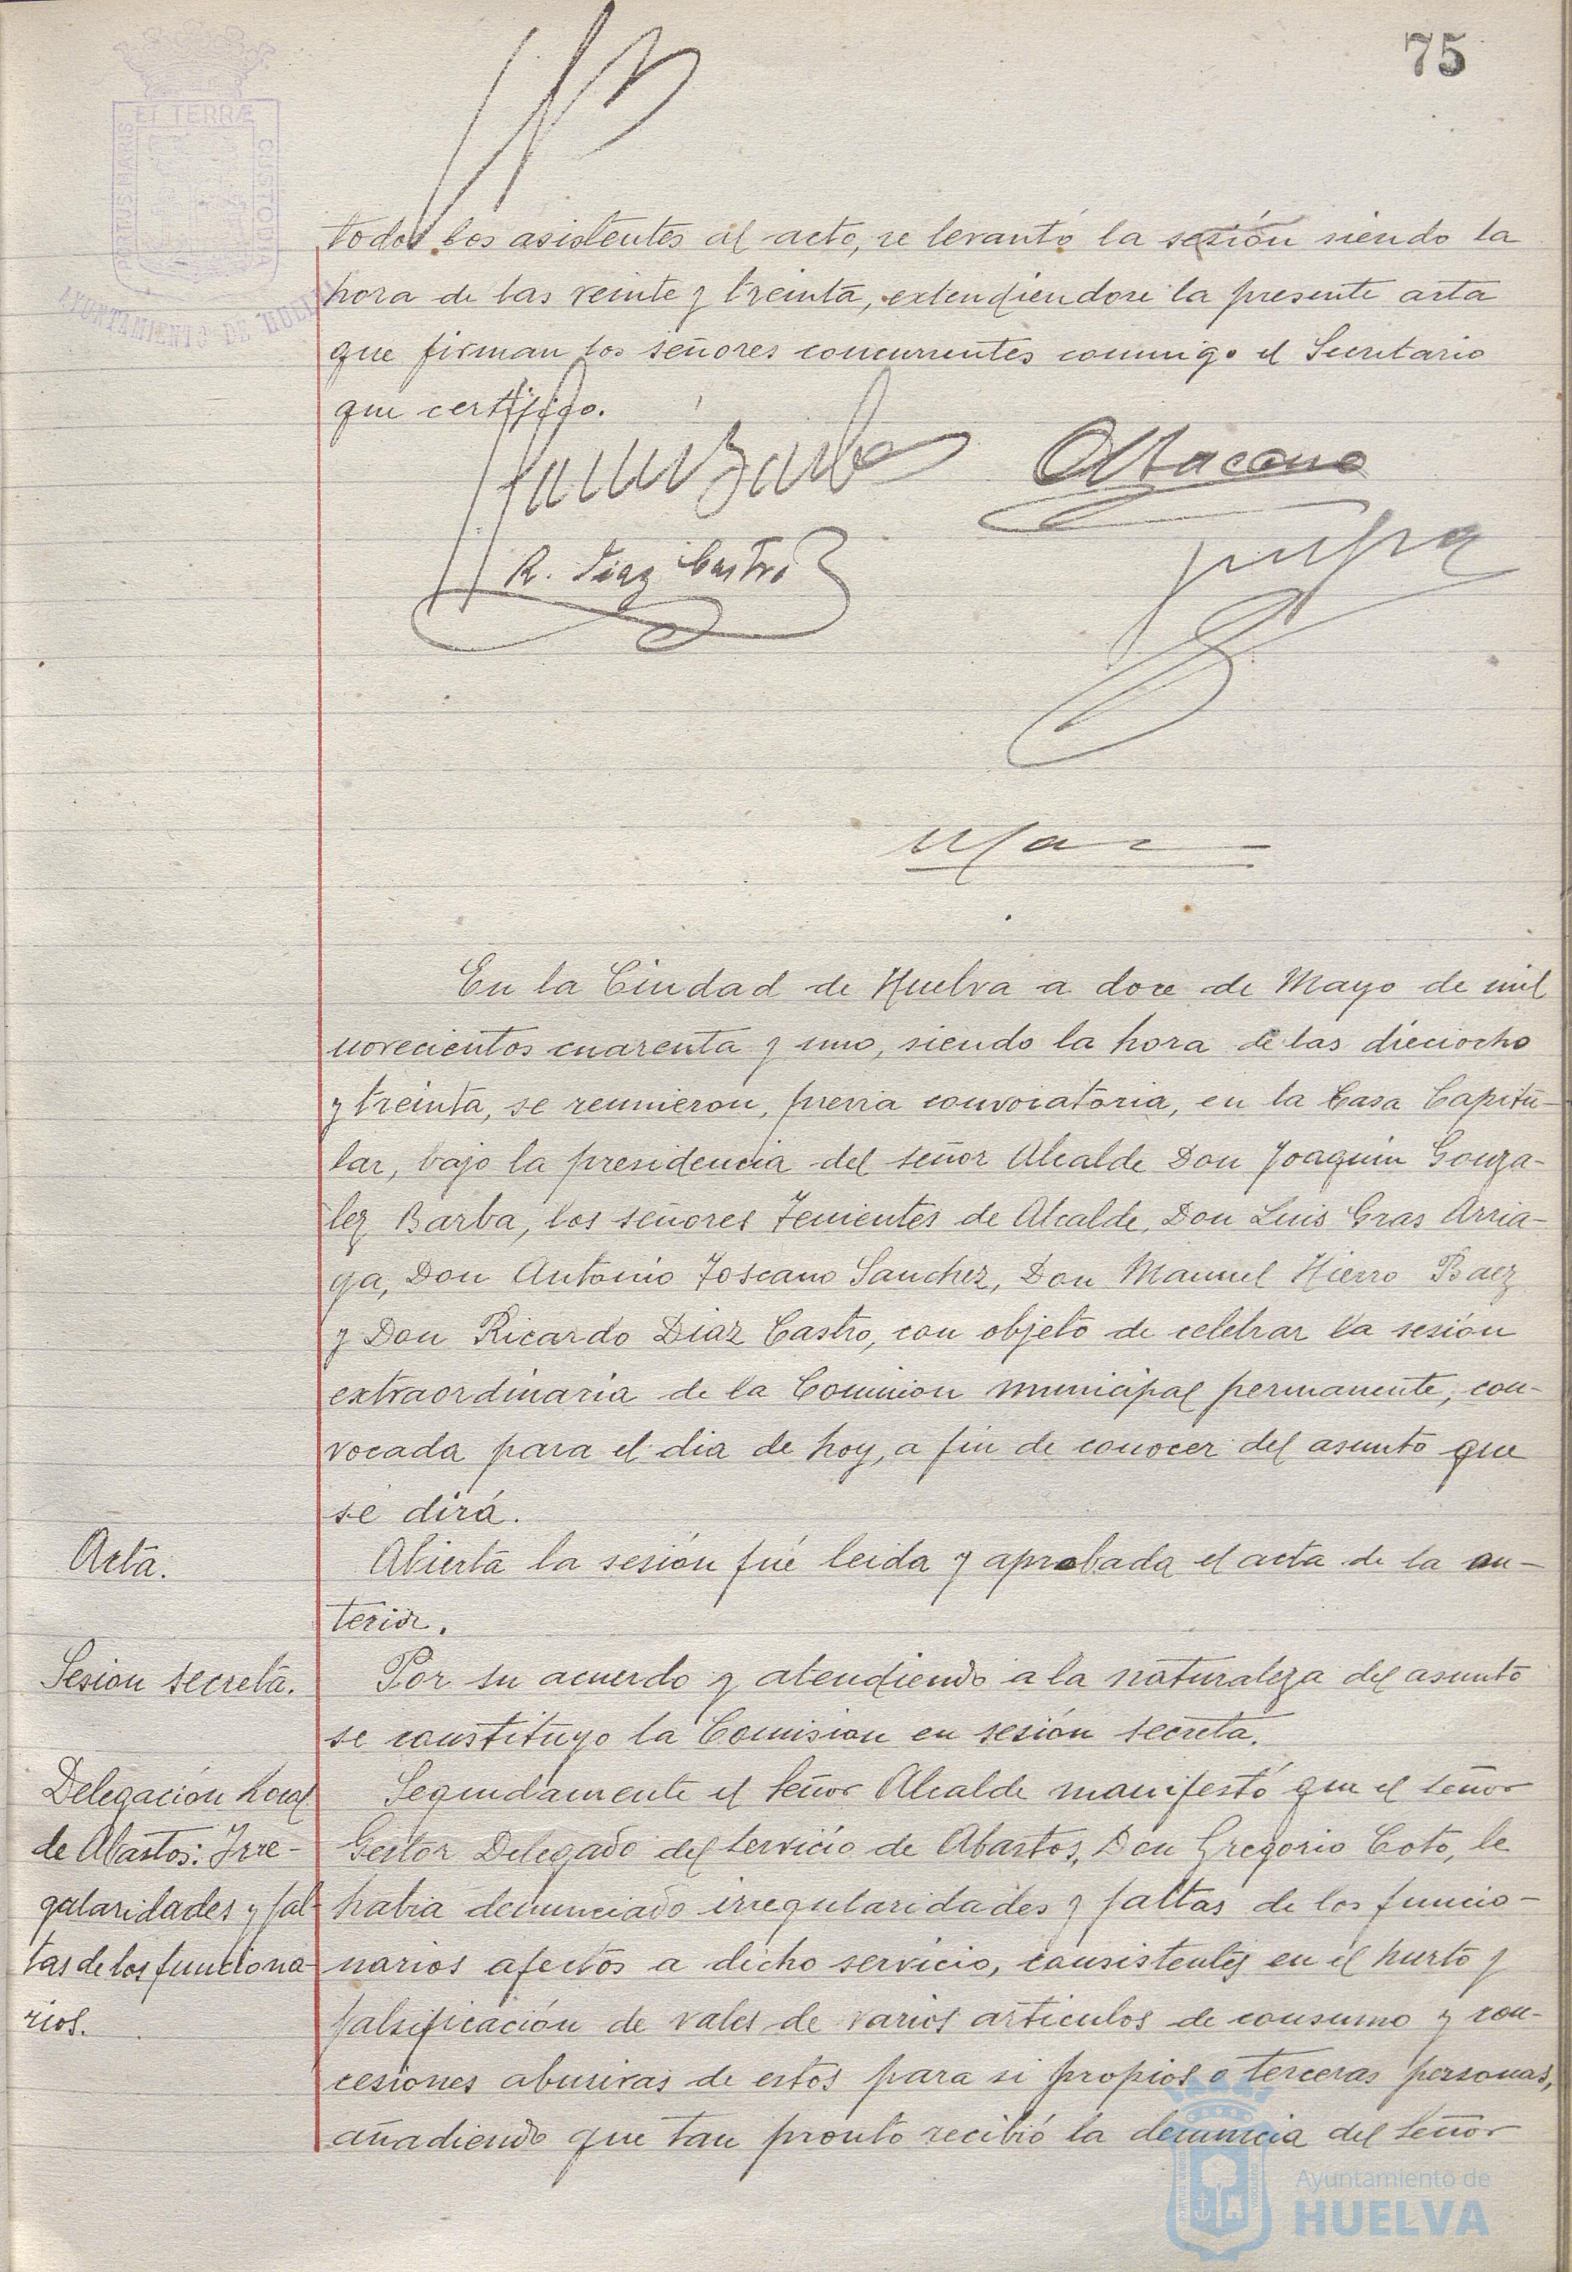 75
ET TERRÆ
PORTUS MARIS
CUSTODIA
AYUNTAMIENTO DE HUELVA
todos los asistentes al acto, se levantó la sesión siendo la
hora de las veinte y treinta, extendiendose la presente acta
que firman los señores concurrentes conmigo el Secretario
que certifico.
R. Diaz Castro
En la Ciudad de Huelva a doce de Mayo de mil
novecientos cuarenta y uno, siendo la hora de las dieciocho
y treinta, se reunieron, previa convocatoria, en la Casa Capitu-
lar, bajo la presidencia del señor Alcalde Don Joaquin Gonza-
lez Barba, los señores Tenientes de Alcalde, Don Luis Gras Arria-
ga, Don Antonio Toscano Sanchez, Don Manuel Hierro Baez
y Don Ricardo Diaz Castro, con objeto de celebrar la sesión
extraordinaria de la Comision municipal permanente, con-
vocada para el dia de hoy, a fin de conocer del asunto que
se dirá.
Acta.
Abierta la sesión fué leida y aprobada el acta de la an-
terior.
Sesion secreta.
Por su acuerdo y atendiendo a la naturaleza del asunto
se constituyo la Comision en sesión secreta.
Delegación local
de Abastos: Irre-
gularidades y fal-
tas de los funciona-
rios.
Seguidamente el señor Alcalde manifestó que el señor
Gestor Delegado del servicio de Abastos, Don Gregorio Coto, le
habia denunciado irregularidades y faltas de los funcio-
narios afectos a dicho servicio, consistentes en el hurto y
falsificación de vales de varios articulos de consumo y con-
cesiones abusivas de estos para si propios o terceras personas,
añadiendo que tan pronto recibió la denuncia del señor
Ayuntamiento de
HUELVA